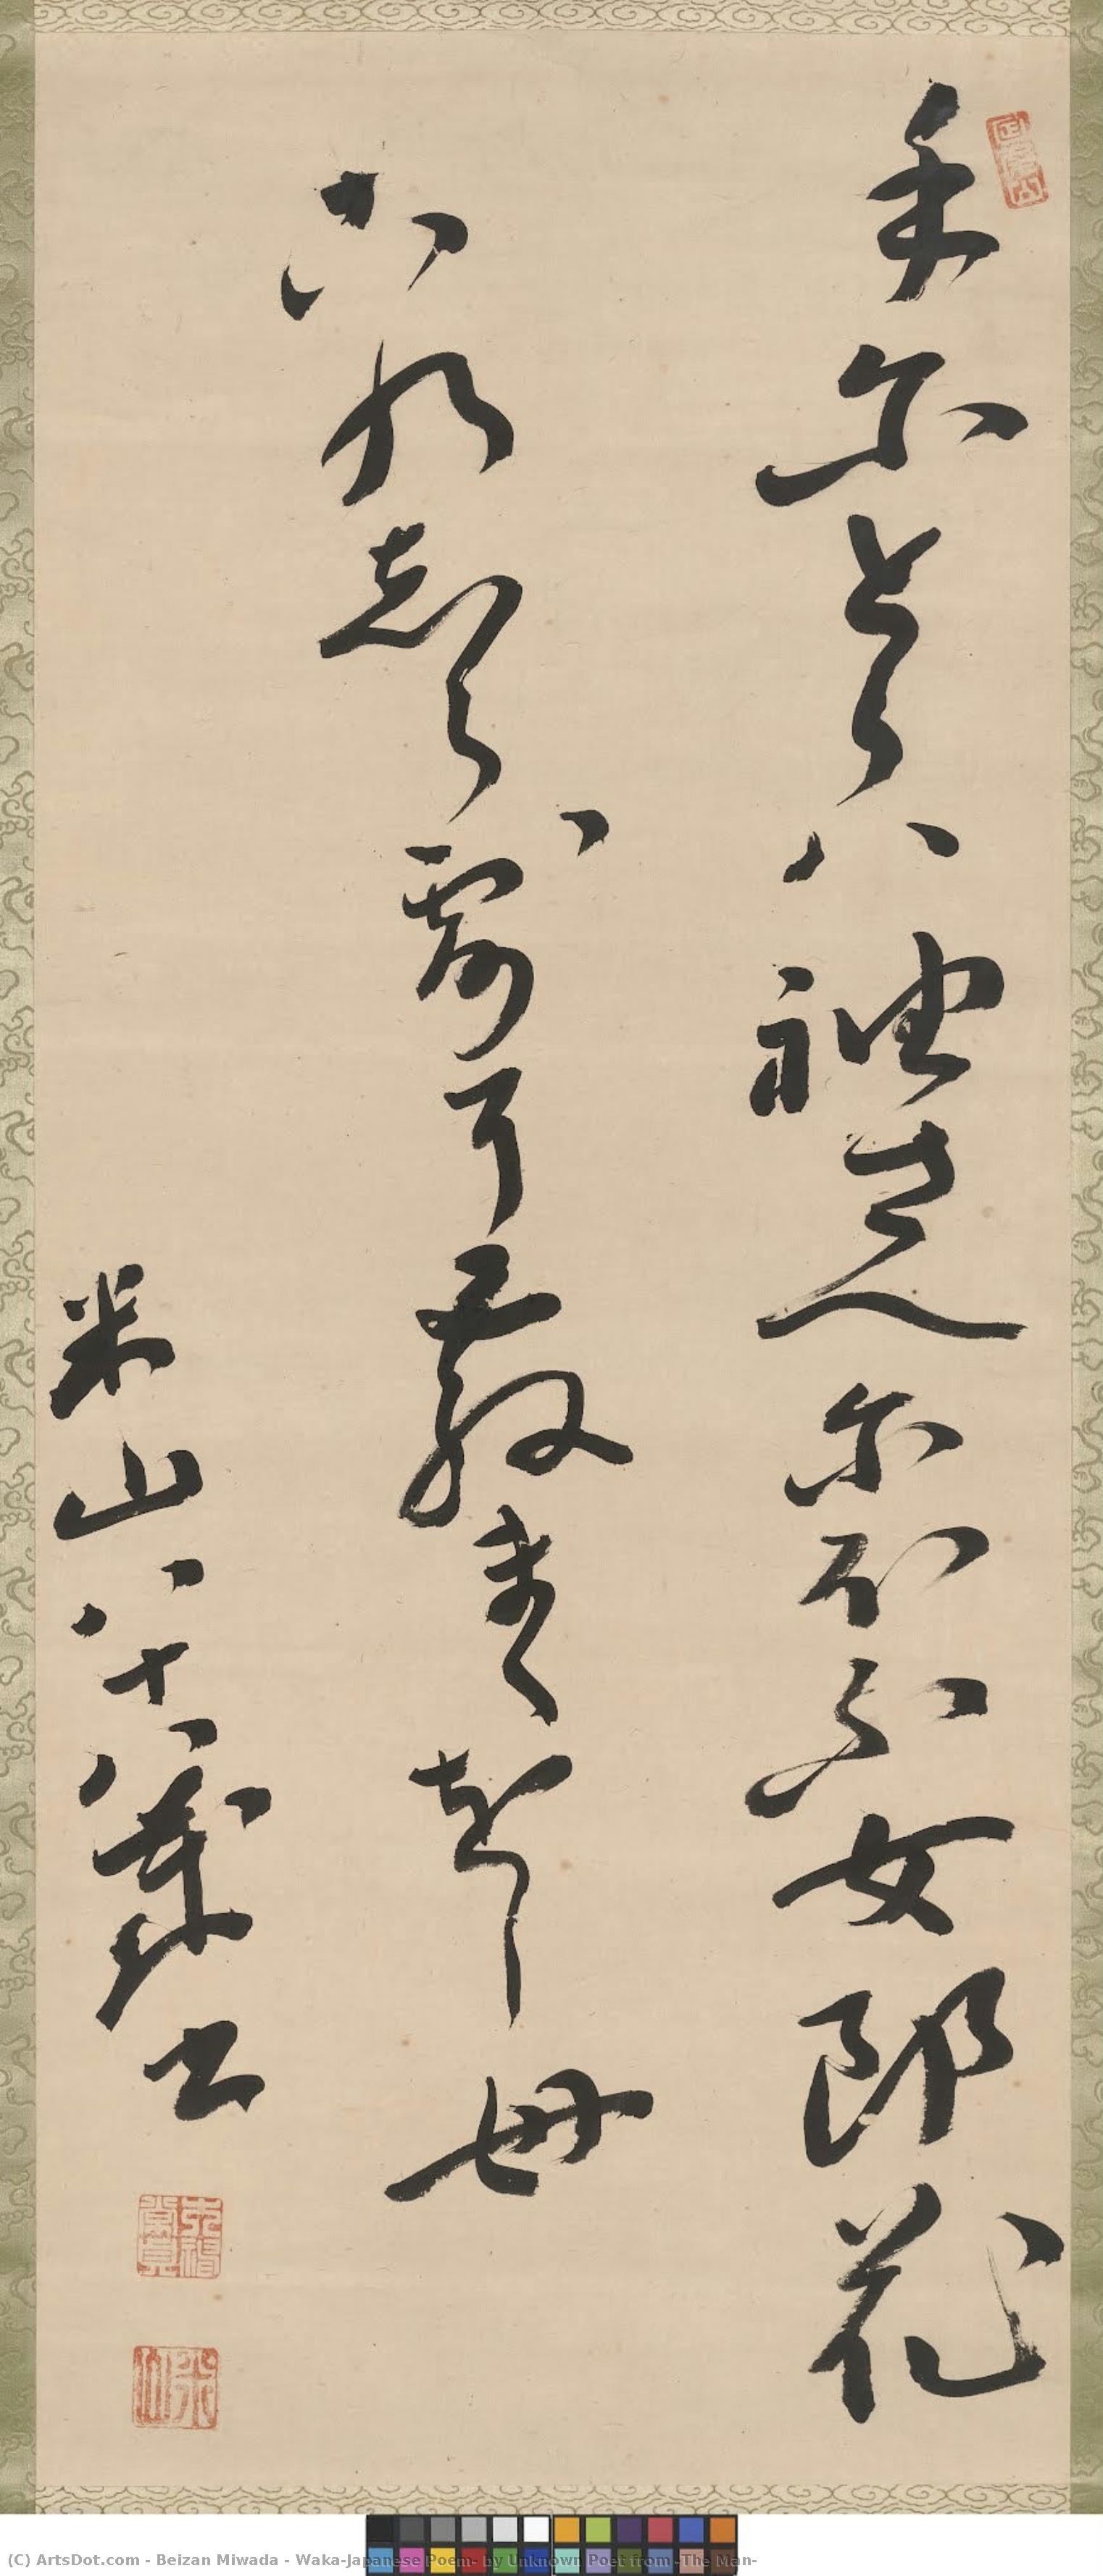 手尓とら八袖さへ尓ほふ女郎花
古乃志ら露耳散まくをし母
米山八十八歳書
(C) ArtsDot.com - Beizan Miwada - Waka-Japanese Poem- by Unknown Poet from -The Man-